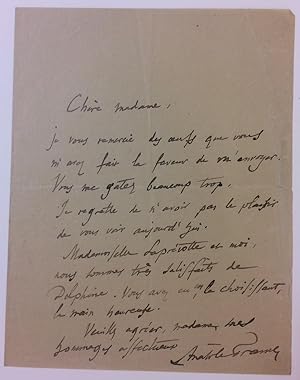 Chère madame,
je vous remercie des œufs que vous
m'avez fait la faveur de m'envoyer.
Vous me gâtez beaucoup trop.
Je regrette de n'avoir pas le plaisir
de vous voir aujourd'hui.
Mademoiselle Laprévotte et moi,
nous sommes très satisfaits de
Delphine. Vous avez eu, en le choisissant,
la main heureuse.
Veuillez agréer, madame, mes
hommages affectueux
Anatole France